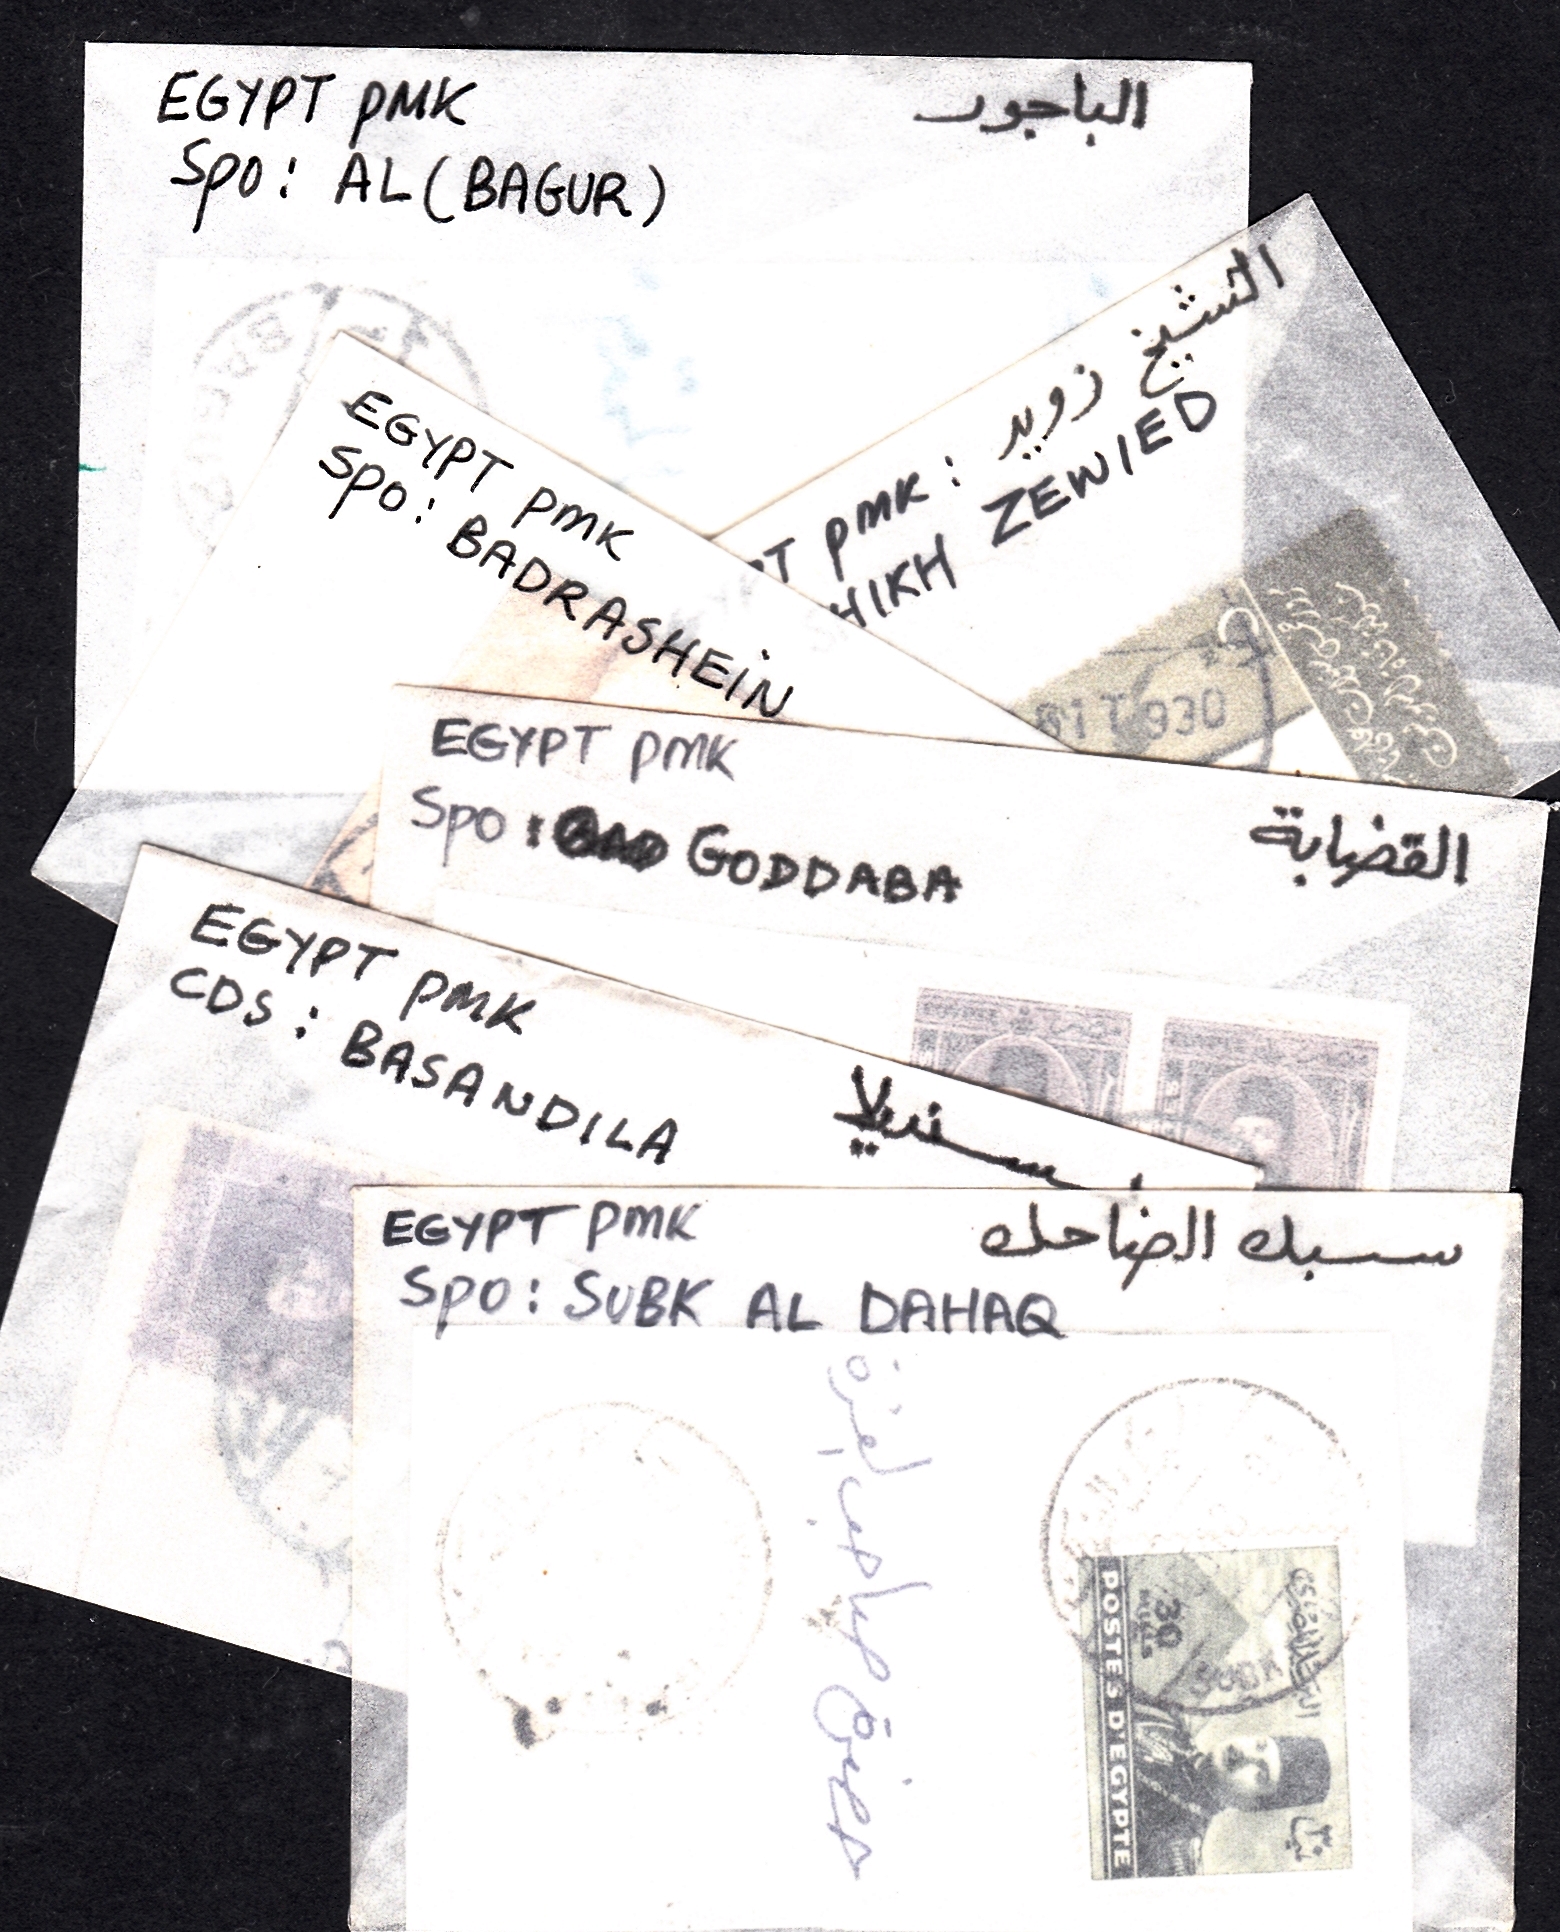 EGYPT PMK
الباجور
Spo: AL (BAGUR)
BAGUR
الشيخ زويد
PT PMK:
HIKH ZEWIED
EGYPT PMK
Spo: BADRASHEIN
930
EGYPT PMK
Spo: GODDABA
القضابة
EGYPT PMK
CDS: BASANDILA
EGYPT PMK
سبك الضاحك
Spo: SUBK AL DAHAQ
30
MILLS
POSTES D'EGYPTE